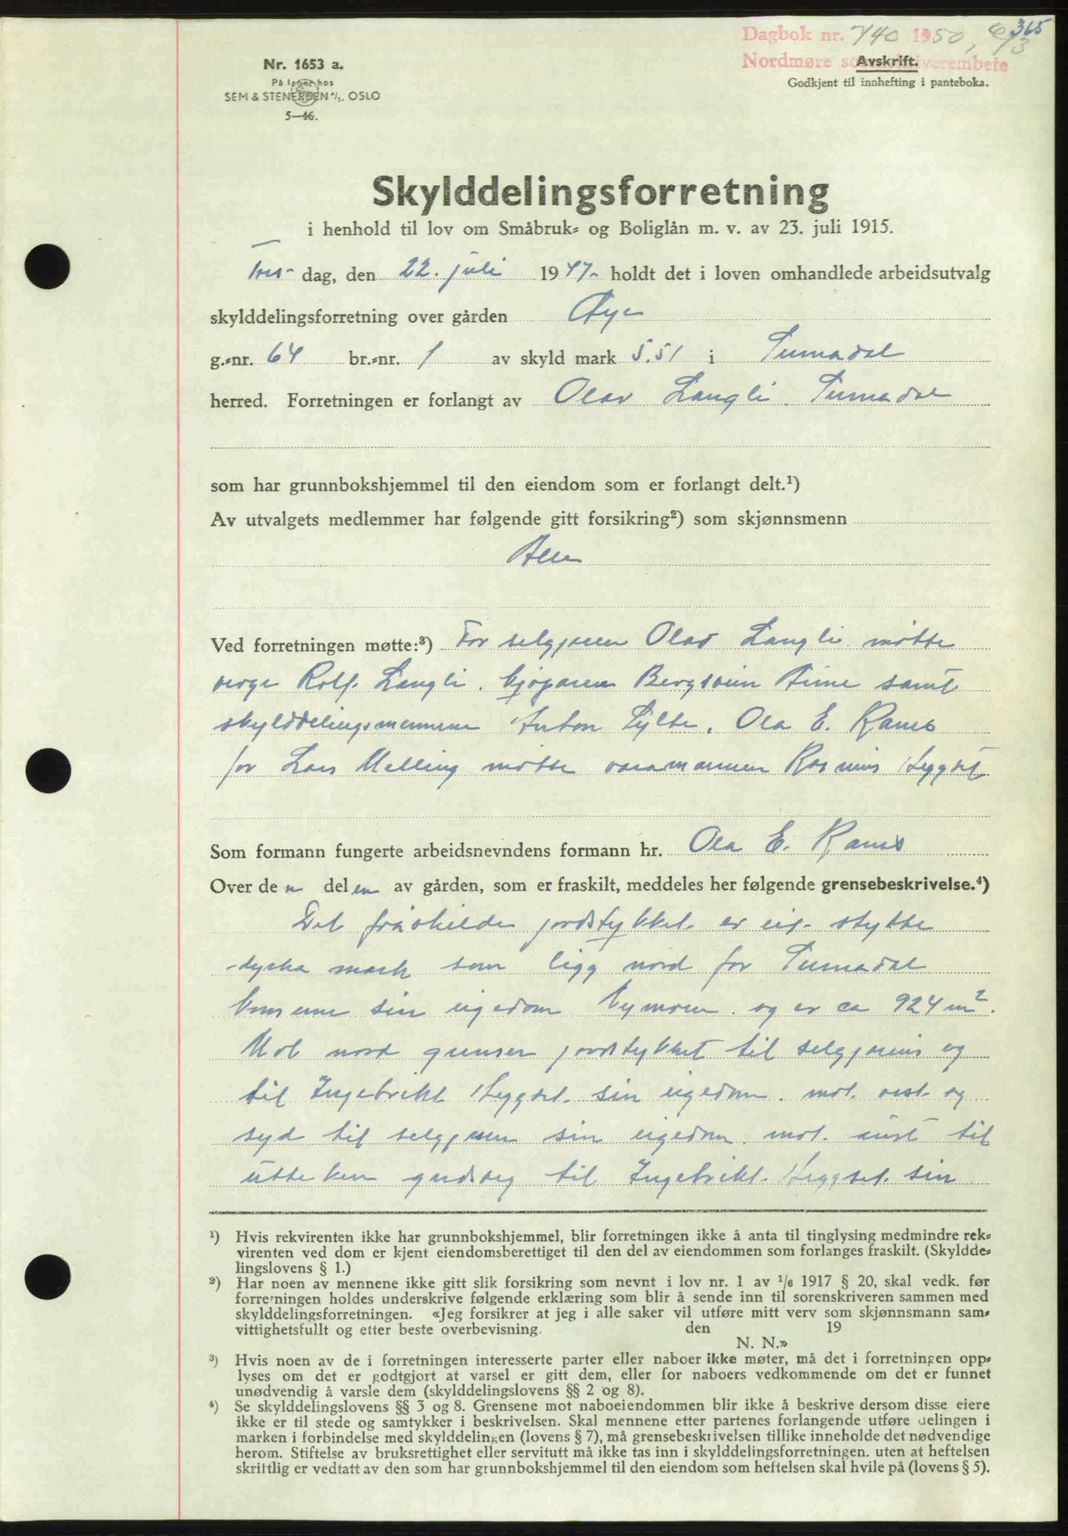 365
Dagbok nr. 740 1950, 6/3
Nordmøre sorenskriverembete
Avskrift.
Godkjent til innhefting i panteboka.
Nr. 1653 a.
På lager hos
SEM & STENERSEN A/S. OSLO
5—46.
Skylddelingsforretning
i henhold til lov om Småbruk- og Boliglån m. v. av 23. juli 1915.
dag, den 22. juli 1947. holdt det i loven omhandlede arbeidsutvalg
skylddelingsforretning over gården Øye
g.-nr. 64 br.-nr. 1 av skyld mark 5.51 i Surnadal
herred. Forretningen er forlangt av Olav Langli. Surnadal
som har grunnbokshjemmel til den eiendom som er forlangt delt.¹)
Av utvalgets medlemmer har følgende gitt forsikring²) som skjønnsmenn
Alle
Ved forretningen møtte:³) For seljaren Olav Langli møtte
verge Rolf Langli. kjøparen Bergsvein samt
skylddelingsmennene Anton Sylte, Ola E. Ranes
for Lars Melling møtte varamannen Rasmus Heggset
Som formann fungerte arbeidsnevndens formann hr. Ola E. Ranes
Over den delen av gården, som er fraskilt, meddeles her følgende grensebeskrivelse.⁴)
Det fråskilde jordstykket er eit stykke
dyrka mark som ligg nord for Surnadal
kommune sin eigedom og er ca 924 m².
Mot nord grenser jordstykket til seljarens og
til Ingebrikt Heggset sin eigedom. mot vest og
syd til seljaren sin eigedom. mot aust til
gardsveg til Ingebrikt Heggset sin
¹) Hvis rekvirenten ikke har grunnbokshjemmel, blir forretningen ikke å anta til tinglysing medmindre rek-
virenten ved dom er kjent eiendomsberettiget til den del av eiendommen som forlanges fraskilt. (Skyldde-
lingslovens § 1.)
²) Har noen av mennene ikke gitt slik forsikring som nevnt i lov nr. 1 av 1/6 1917 § 20, skal vedk. før
forretningen holdes underskrive følgende erklæring som blir å sende inn til sorenskriveren sammen med
skylddelingsforretningen. «Jeg forsikrer at jeg i alle saker vil utføre mitt verv som skjønnsmann sam-
vittighetsfullt og etter beste overbevisning. den 19
N. N.»
³) Hvis noen av de i forretningen interesserte parter eller naboer ikke møter, må det i forretningen opp-
lyses om det er godtgjort at varsel er gitt dem, eller for naboers vedkommende om det er funnet
unødvendig å varsle dem (skylddelingslovens §§ 2 og 8).
⁴) Se skylddelingslovens §§ 3 og 8. Grensene mot naboeiendommen blir ikke å beskrive dersom disse eiere
ikke er til stede og samtykker i beskrivelsen. Skal mennene etter partenes forlangende utføre delingen i
marken i forbindelse med skylddelingen (lovens § 7), må grensebeskrivelsen tillike inneholde det nødvendige
herom. Stiftelse av bruksrettighet eller servitutt må ikke tas inn i skylddelingsforretningen. uten at heftelsen
skriftlig er vedtatt av den som har grunnbokshjemmel til den eiendom som heftelsen skal hvile på (lovens § 5).